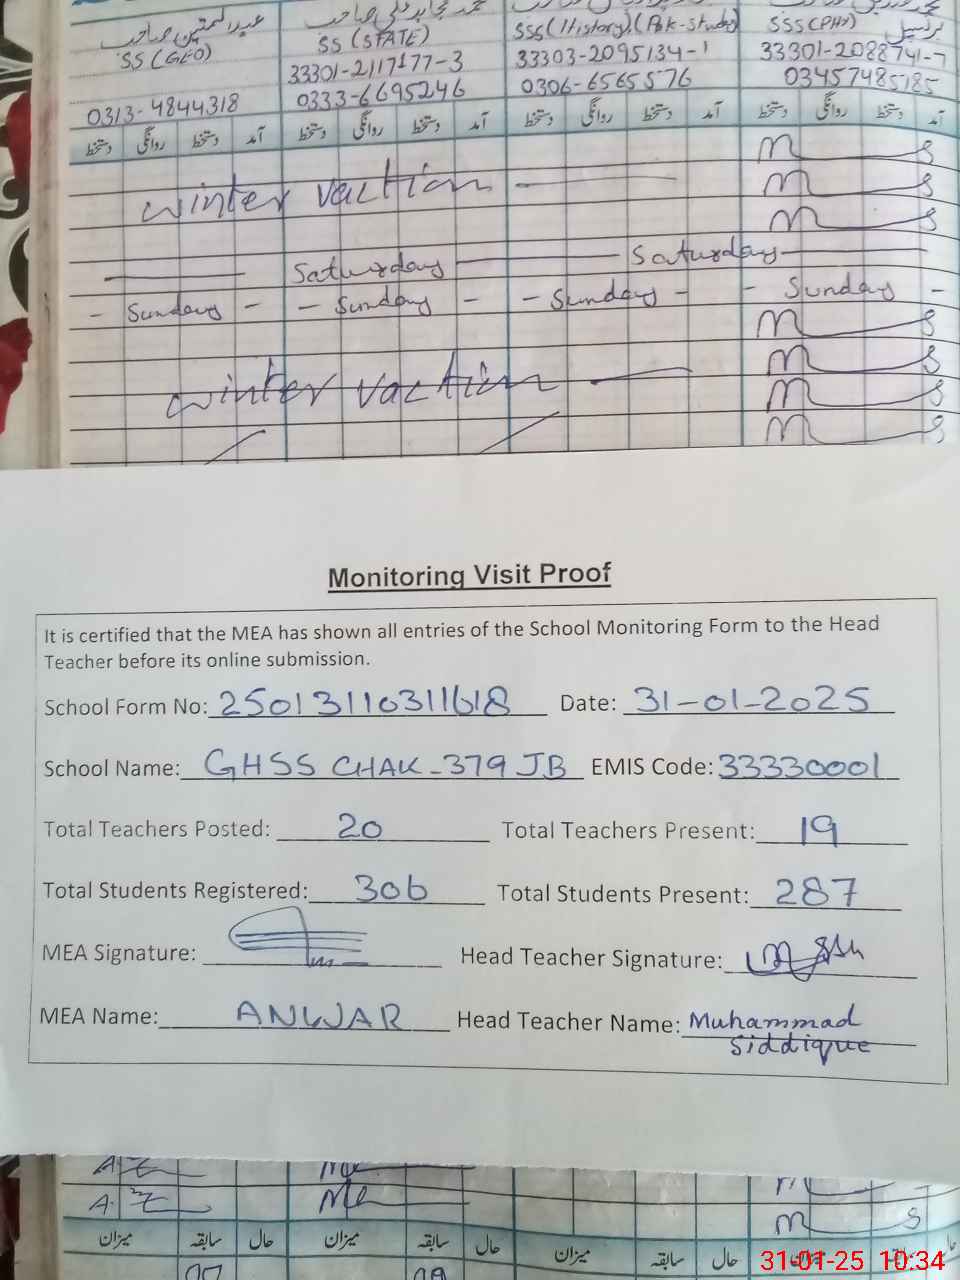 SS (GEO) SS (STATE) SSS (History), (Pak-Study) SSS (PHY) پرنسپل
33301-2117177-3 33303-2095134-1 33301-2088741-7
0313-4844318 0333-6695246 0306-6565576 03457485185
دستخط روانگی دستخط آمد دستخط روانگی دستخط آمد دستخط روانگی دستخط آمد دستخط روانگی دستخط آمد
winter vaction
Saturday Saturday
Sunday Sunday Sunday Sunday
winter vaction
Monitoring Visit Proof
It is certified that the MEA has shown all entries of the School Monitoring Form to the Head
Teacher before its online submission.
School Form No: 25013110311618 Date: 31-01-2025
School Name: GHSS CHAK-379 JB EMIS Code: 33330001
Total Teachers Posted: 20 Total Teachers Present: 19
Total Students Registered: 306 Total Students Present: 287
MEA Signature: Head Teacher Signature:
MEA Name: ANWAR Head Teacher Name: Muhammad
Siddique
میزان سابقہ حال میزان سابقہ حال میزان سابقہ حال میزان سابقہ حال
31-01-25 10:34